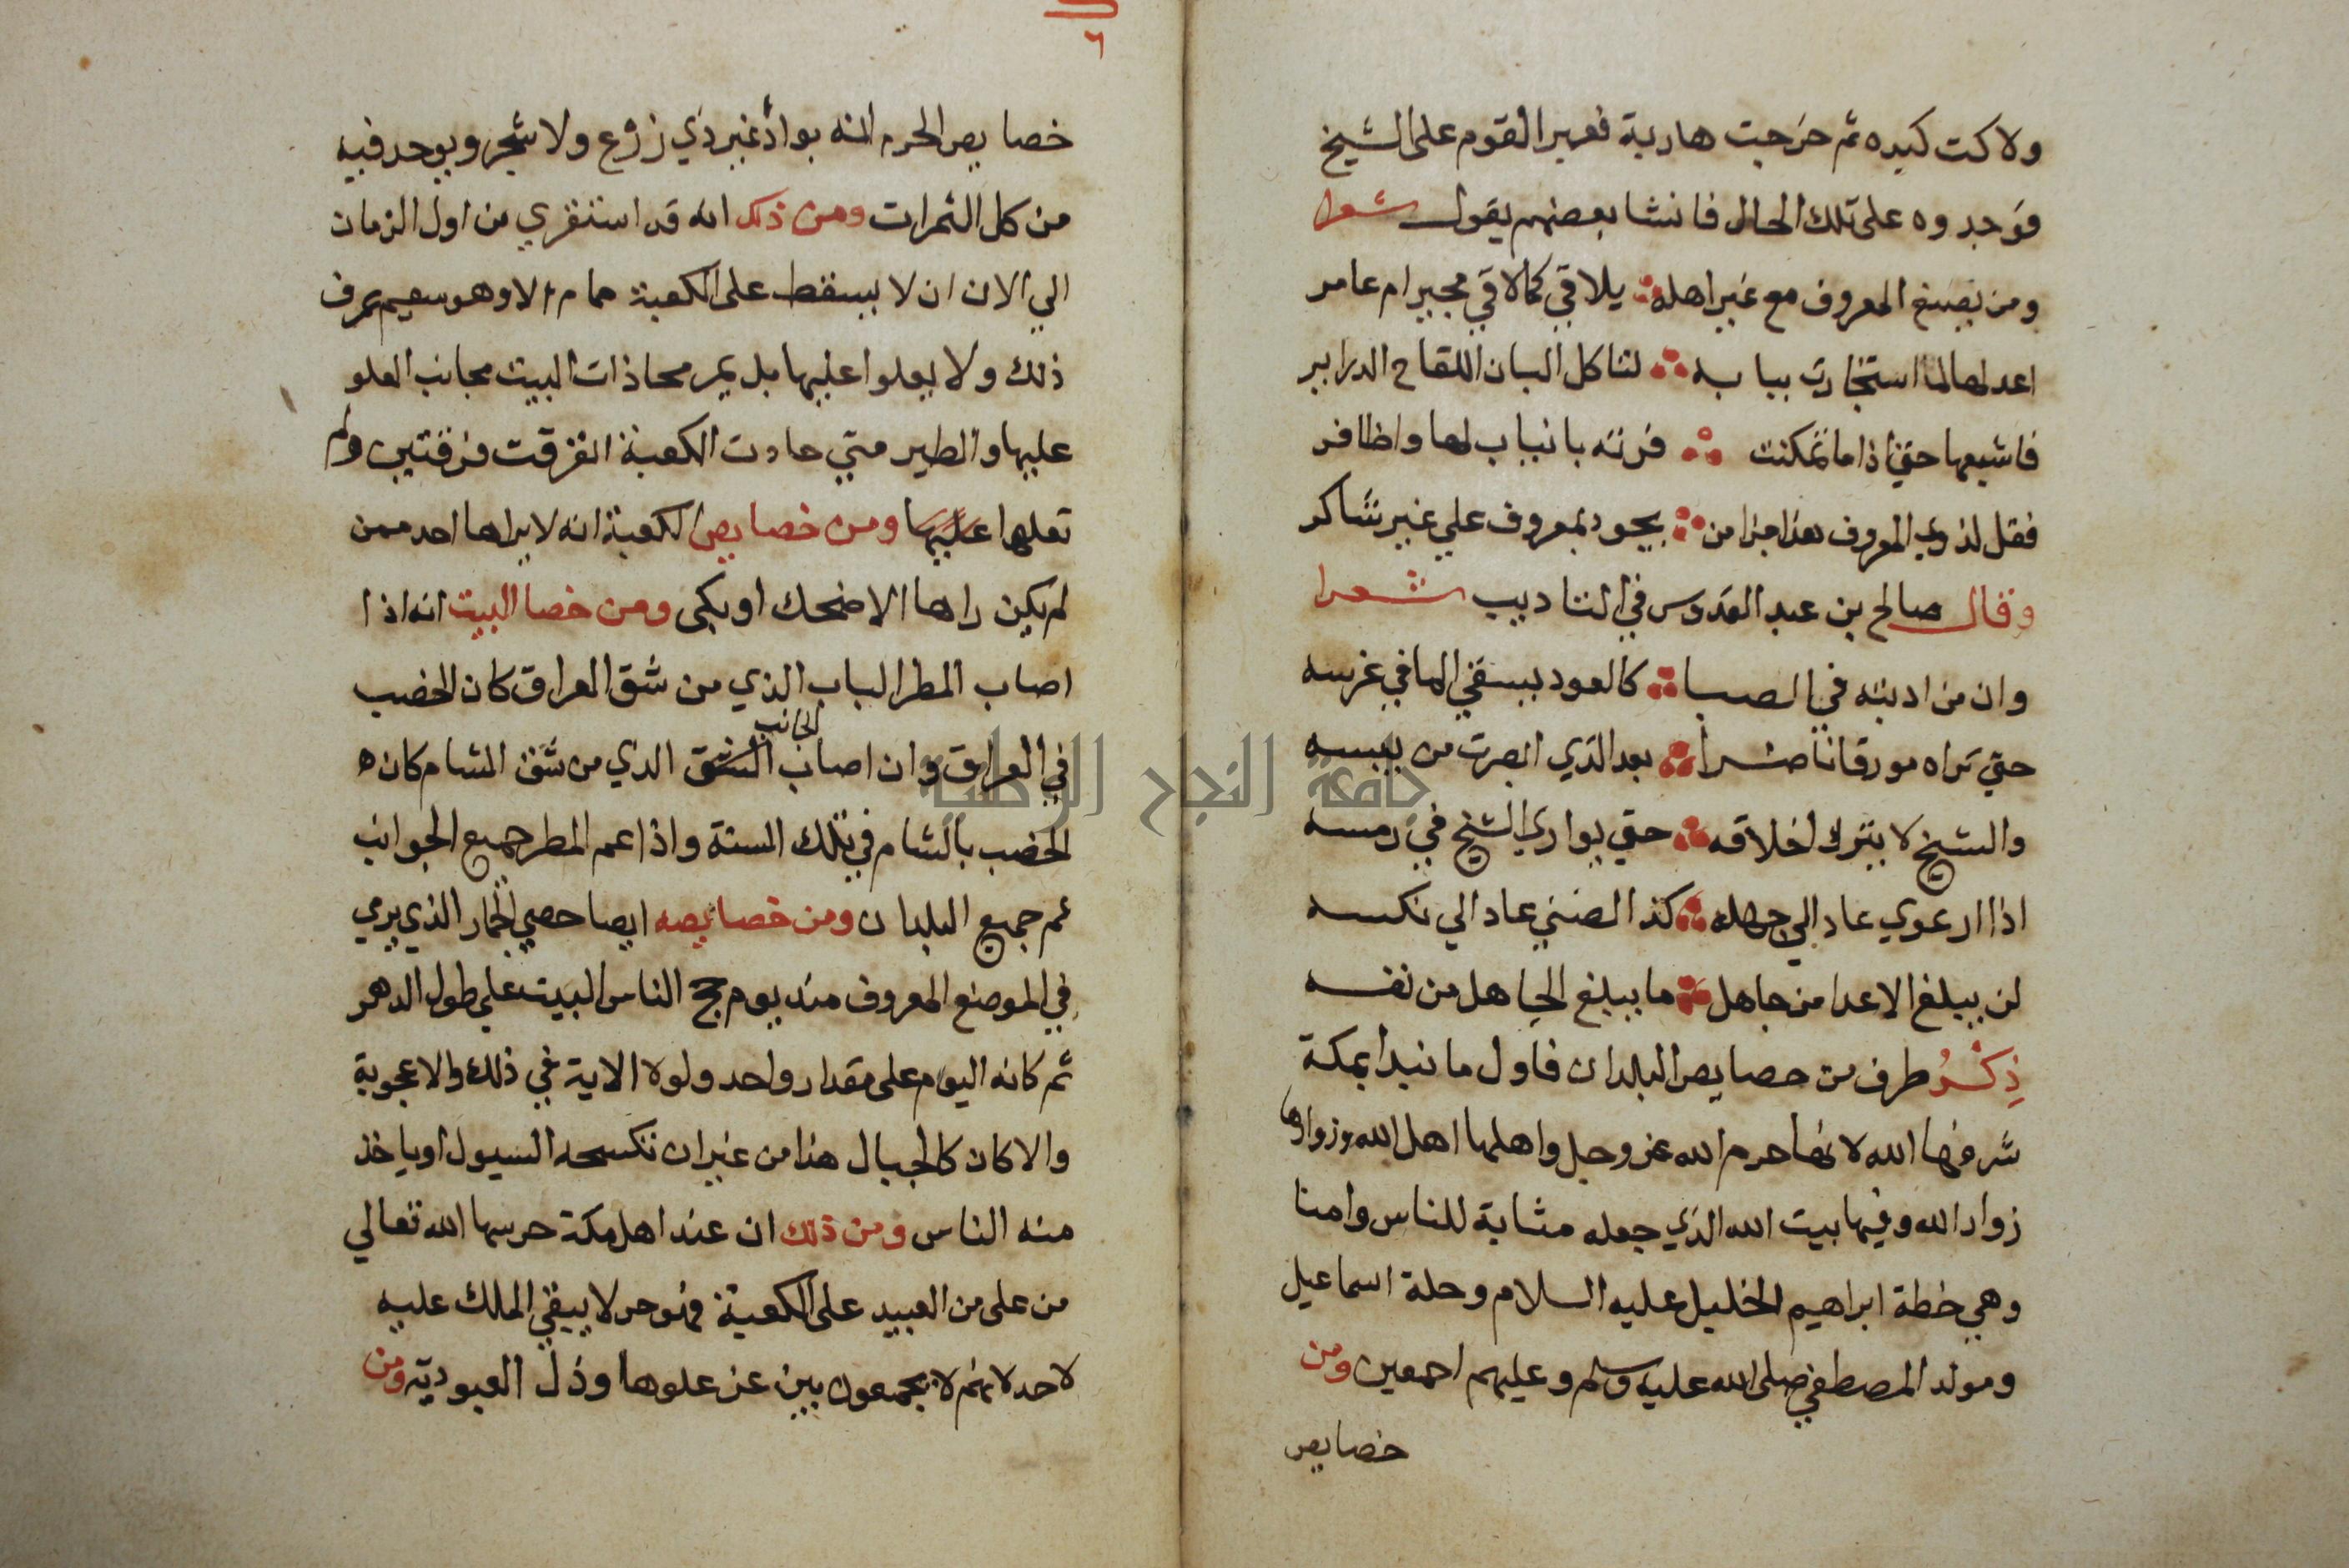 ولاكت كبده ثم خرجت هاربة فعبر القوم على الشيخ
فوجدوه على تلك الحال فانشا بعضهم يقول شعرا
ومن يصنع المعروف مع غير اهله يلاقي كما لاقي مجير ام عامر
اعد لها لما استجارت ببابه لتاكل البان اللقاح الدراير
فاشبعها حتي اذا ما تمكنت فرته بانياب لها واظافر
فقل لذوي المعروف هذا جزا من يجود بمعروف علي غير شاكر
وقال صالح بن عبد القدوس في التاديب شعرا
وان من ادبته في الصبا كالعود يسقي الما في غرسه
حتي تراه مورقا ناضرا بعد الذي ابصرت من يبسه
والشيخ لا يترك اخلاقه حتي يواري الشيخ في رمسه
اذا ارعوي عاد الي جهله كذا الضني عاد الي نكسه
لن يبلغ الاعدا من جاهل ما يبلغ الجاهل من نفسه
ذكر طرف من خصايص البلدان فاول ما نبدا بمكة
شرفها الله لانها حرم الله عز وجل واهلها اهل الله وزوارها
زوار الله وفيها بيت الله الذي جعله مثابة للناس وامنا
وهي خطة ابراهيم الخليل عليه السلام وحلة اسماعيل
ومولد المصطفي صلى الله عليه وسلم وعليهم اجمعين ومن
خصايص
٦
خصايص الحرم انه بواد غير ذي زرع ولا شجر ويوجد فيه
من كل الثمرات ومن ذلك انه قد استقري من اول الزمان
الي الان ان لا يسقط على الكعبة حمام الا وهو سقيم يعرف
ذلك ولا يعلوا عليها بل يمر محاذات البيت مجانب العلو
عليها والطير متي حادت الكعبة افترقت فرقتين ولم
تعلها عليها ومن خصايص الكعبة انه لا يراها احد ممن
لم يكن راها الا ضحك او بكى ومن خصا البيت انه اذا
اصاب المطر الباب الذي من شق العراق كان الخصب
في العراق وان اصاب الشق الجانب الذي من شق الشام كان
الخصب بالشام في تلك السنة واذا عم المطر جميع الجوانب
عم جميع البلدان ومن خصايصه ايضا حصي الجمار الذي يرمي
في الموضع المعروف منذ يوم حج الناس البيت علي طول الدهر
ثم كانه اليوم على مقدار واحد ولولا الاية في ذلك والاعجوبة
والا كان كالجبال هذا من غير ان تكسحه السيول او ياخذ
منه الناس ومن ذلك ان عند اهل مكة حرسها الله تعالي
من على من العبيد على الكعبة فهو حر لا يبقي الملك عليه
لاحد لانهم لا يجمعون بين عز علوها وذل العبودية ومن
جامعة النجاح الوطنية